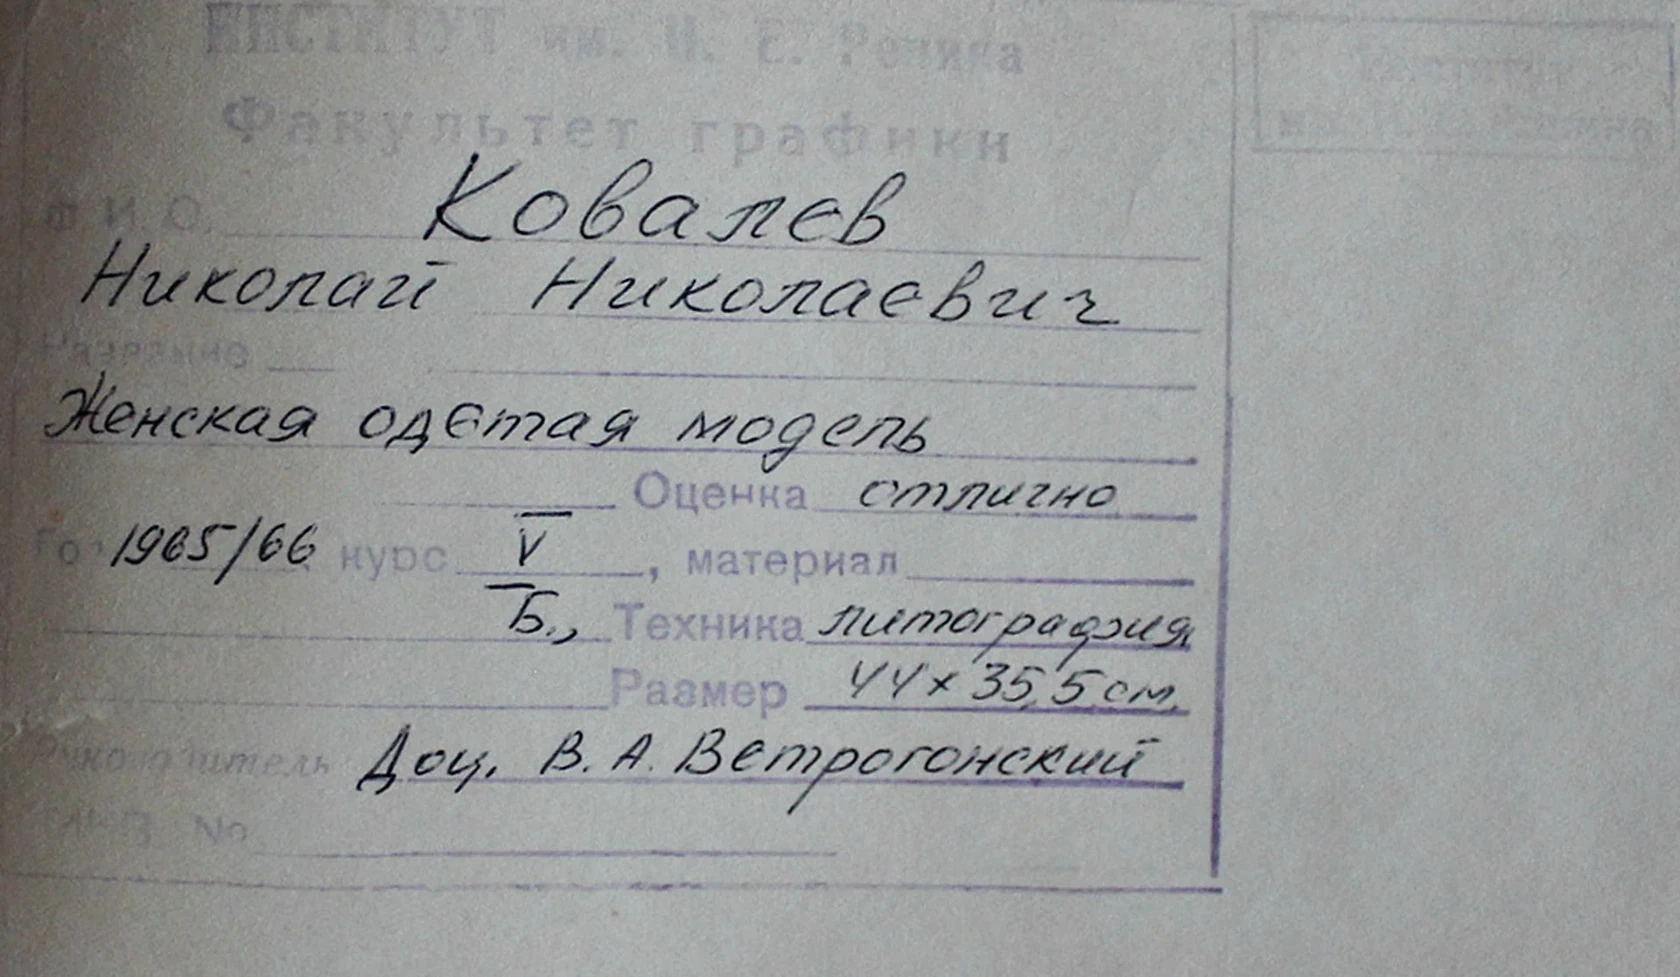 ИНСТИТУТ им. И. Е. Репина
Факультет графики
Ф.И.О. Ковалев
Николай Николаевич
Название
Женская одетая модель
Оценка отлично
Год 1965/66 курс V, материал
Б., Техника литография
Размер 44х35,5 см.
Руководитель Доц. В. А. Ветрогонский
ИНВ. №
Институт
им. И. Е. Репина